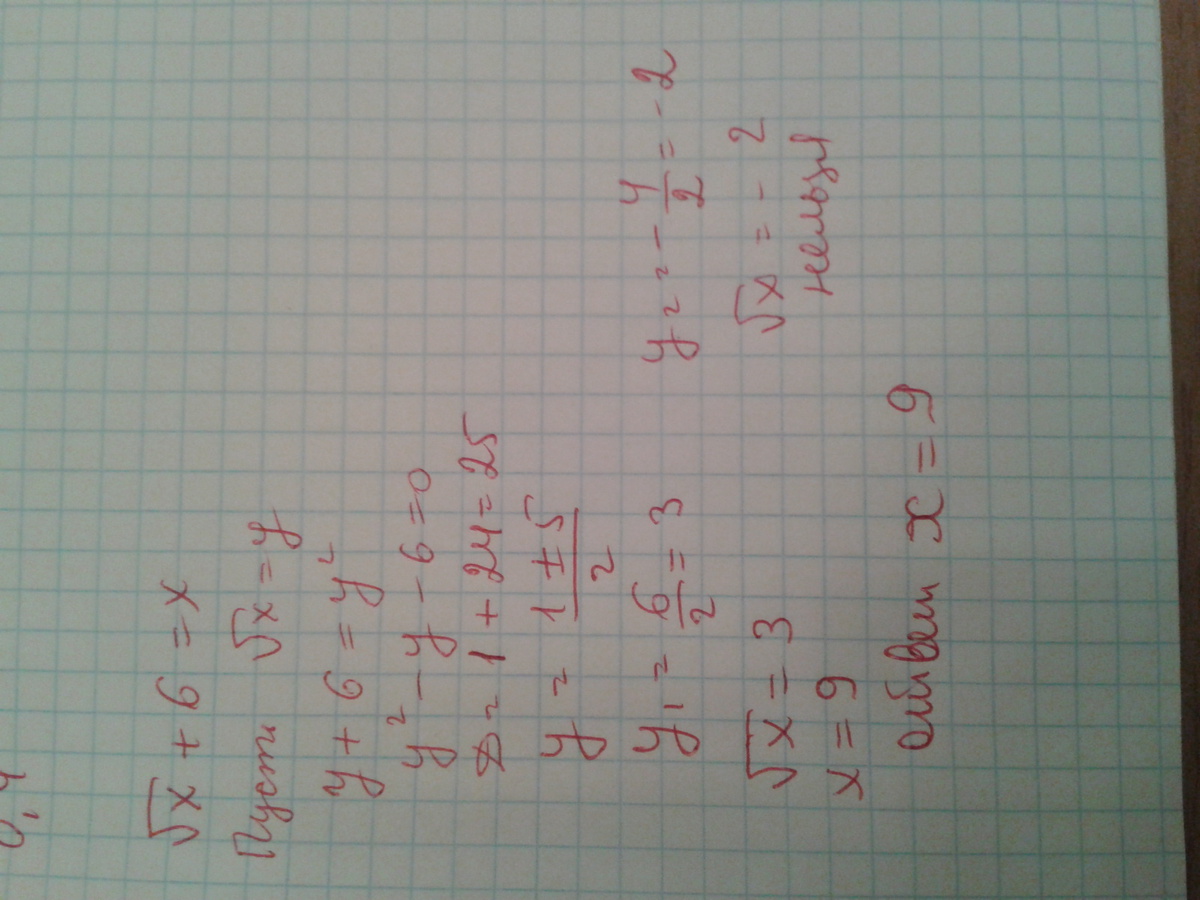 √x + 6 = x
Пусть √x = y
y + 6 = y²
y² - y - 6 = 0
D = 1 + 24 = 25
y = (1 ± 5)/2
y₁ = 6/2 = 3
y₂ = -4/2 = -2
√x = 3
√x = -2
x = 9
нельзя
ответ x = 9